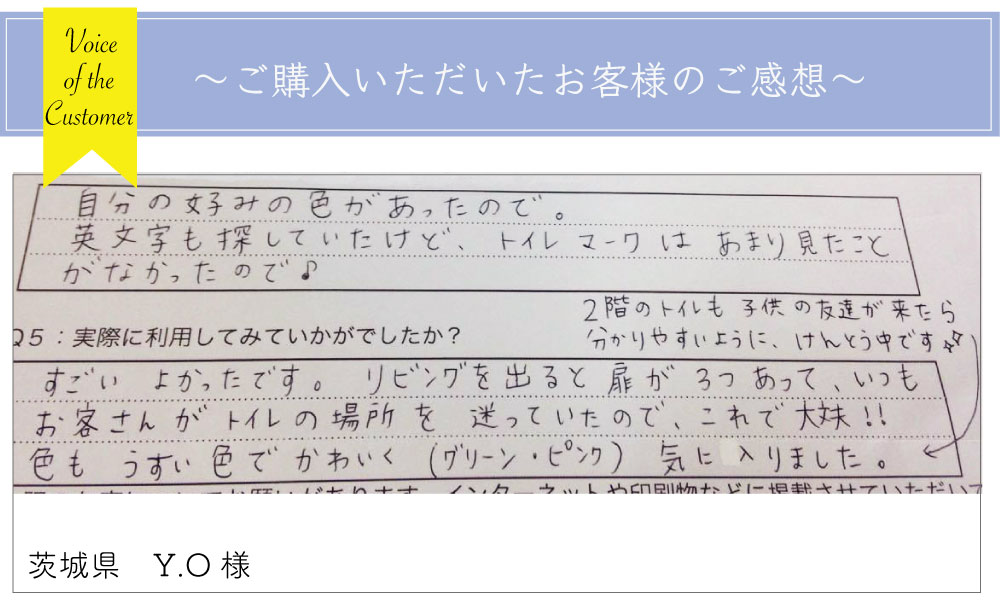 Voice
of the
Customer
～ご購入いただいたお客様のご感想～
自分の好みの色があったので。
英文字も探していたけど、トイレマークは あまり見たこと
がなかったので♪
2階のトイレも子供の友達が来たら
分かりやすいように、けんとう中です☆☆
Q5：実際に利用してみていかがでしたか？
すごい よかったです。リビングを出ると扉が3つあって、いつも
お客さんがトイレの場所を迷っていたので、これで大丈夫!!
色も うすい色でかわいく（グリーン・ピンク）気に入りました。
茨城県　Y.O 様